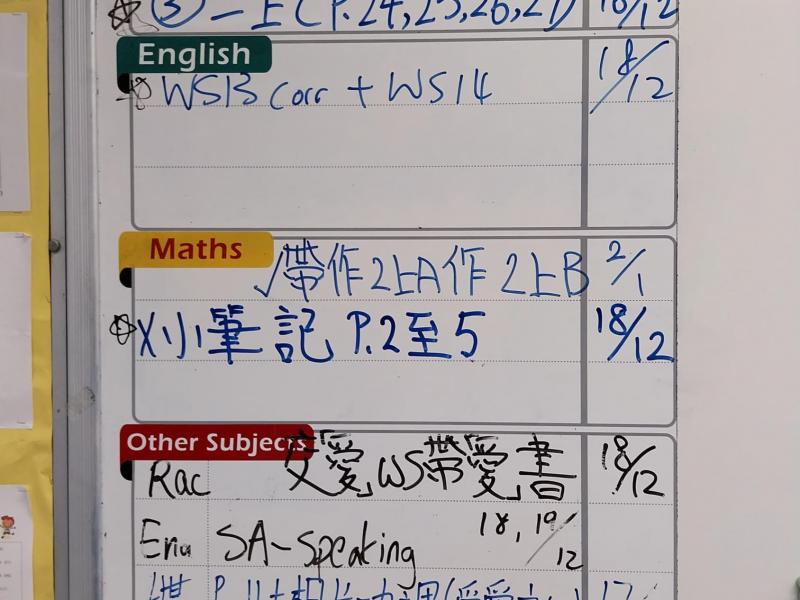 ③一上(P.24,25,26,27) 18/12
English
WS13 corr + WS14 18/12
Maths
√帶作2上A作2上B 2/1
X小筆記 P.2至5 18/12
Other Subjects
Rac 交「愛」WS帶「愛」書 18/12
SA-Speaking 18, 19/12